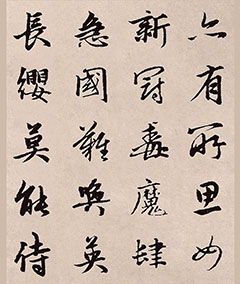 亦有所思女
新冠毒魔肆
急國難喚英
長纓莫能待